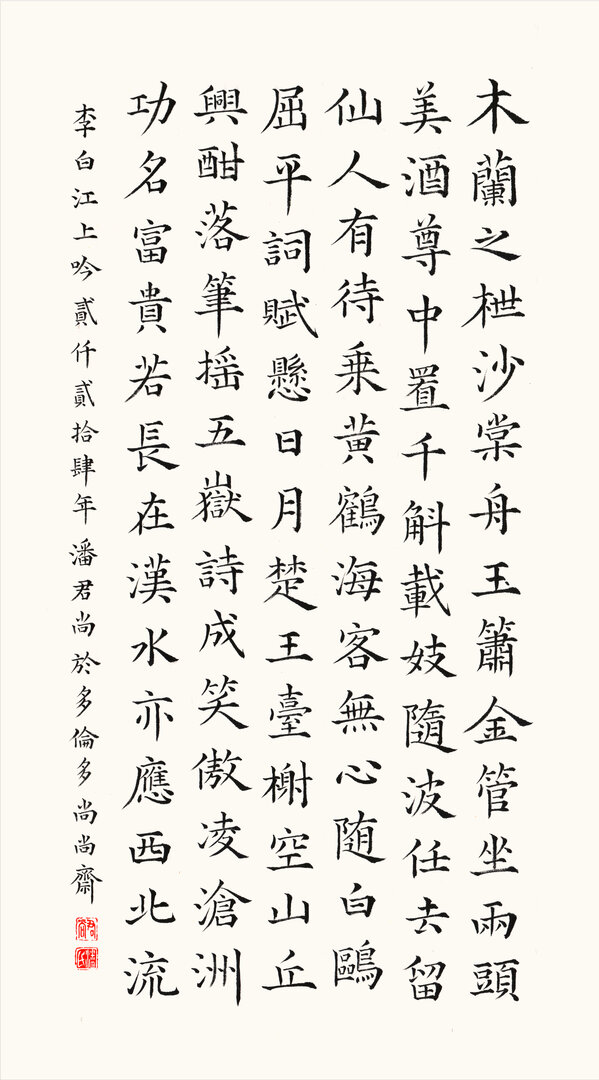 木蘭之枻沙棠舟玉簫金管坐兩頭
美酒尊中置千斛載妓隨波任去留
仙人有待乘黄鶴海客無心随白鷗
屈平詞賦懸日月楚王臺榭空山丘
興酣落筆摇五嶽詩成笑傲凌滄洲
功名富貴若長在漢水亦應西北流
李白江上吟貳仟貳拾肆年潘君尚於多倫多尚尚齋